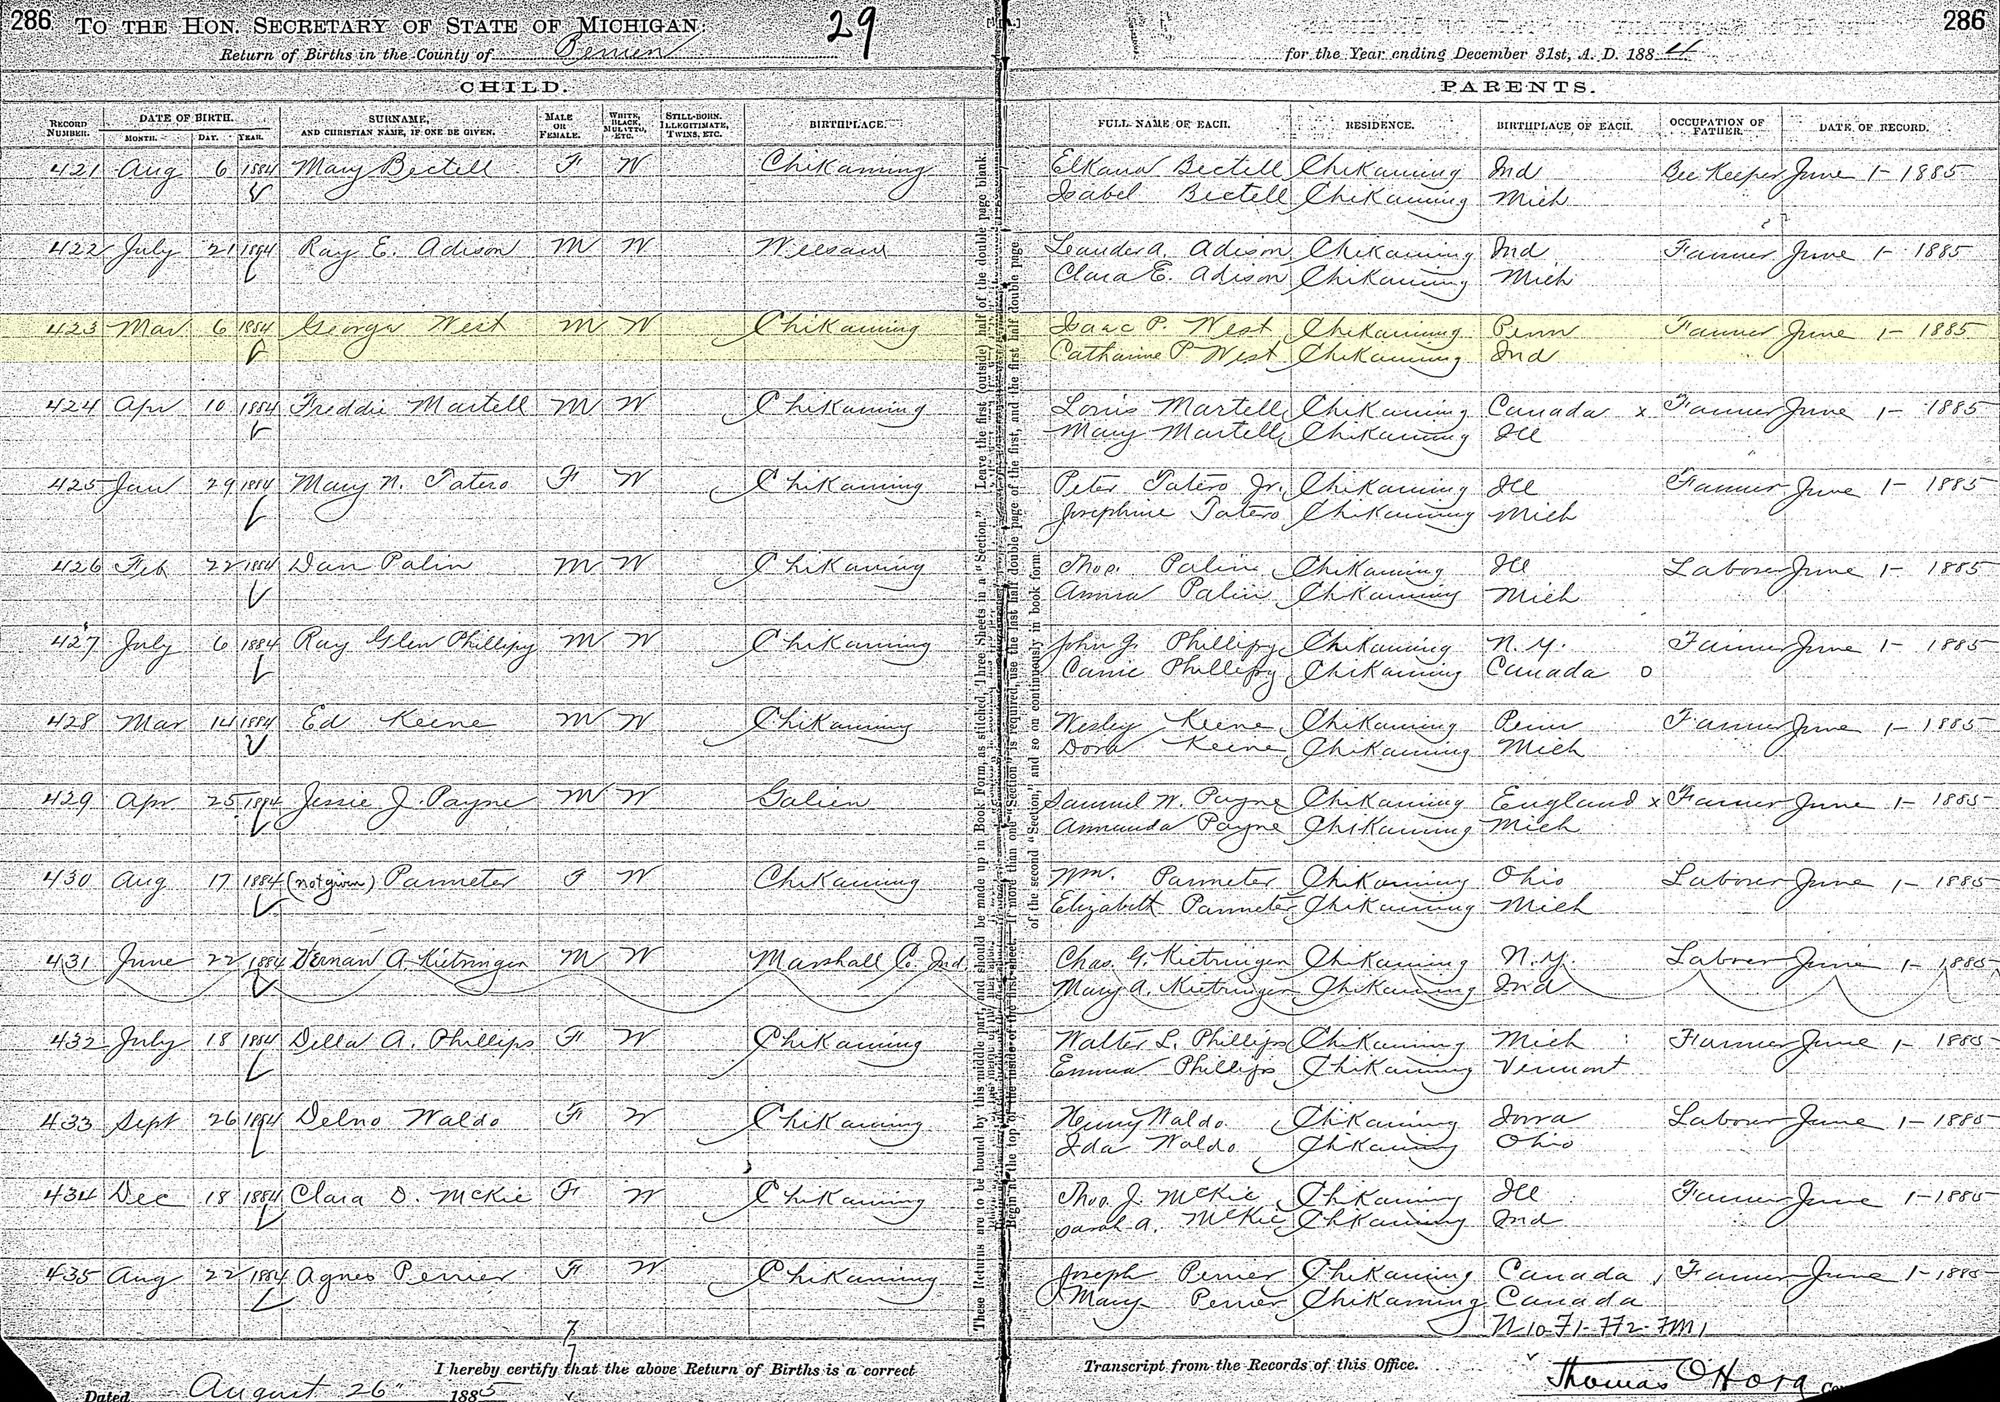 286 TO THE HON. SECRETARY OF STATE OF MICHIGAN: 29 286
Return of Births in the County of Berrien for the Year ending December 31st, A. D. 1884
CHILD. PARENTS.
RECORD NUMBER. DATE OF BIRTH. MONTH. DAY. YEAR. SURNAME, AND CHRISTIAN NAME, IF ONE BE GIVEN. MALE OR FEMALE. WHITE, BLACK, MULATTO, ETC. STILL-BORN, ILLEGITIMATE, TWINS, ETC. BIRTHPLACE. FULL NAME OF EACH. RESIDENCE. BIRTHPLACE OF EACH. OCCUPATION OF FATHER. DATE OF RECORD.
421 Aug 6 1884 Mary Bectell F W Chikaming Elkana Bectell Chikaming Ind Bee Keeper June 1- 1885
Isabel Bectell Chikaming Mich
422 July 21 1884 Ray E. Adison M W Weesaw Leander A. Adison Chikaming Ind Farmer June 1- 1885
Clara E. Adison Chikaming Mich
423 Mar 6 1884 George West M W Chikaming Isaac P. West Chikaming Penn Farmer June 1- 1885
Catharine P West Chikaming Ind
424 Apr 10 1884 Freddie Martell M W Chikaming Louis Martell Chikaming Canada x Farmer June 1- 1885
Mary Martell Chikaming Ill
425 Jan 29 1884 Mary N. Tatero F W Chikaming Peter Tatero Jr. Chikaming Ill Farmer June 1- 1885
Josephine Tatero Chikaming Mich
426 Feb 22 1884 Dan Palin M W Chikaming Thos. Palin Chikaming Ill Laborer June 1- 1885
Anna Palin Chikaming Mich
427 July 6 1884 Ray Glen Phillipy M W Chikaming John J. Phillipy Chikaming N.Y. Farmer June 1- 1885
Carrie Phillipy Chikaming Canada o
428 Mar 14 1884 Ed Keene M W Chikaming Wesley Keene Chikaming Penn Farmer June 1- 1885
Dora Keene Chikaming Mich
429 Apr 25 1884 Jessie J. Payne M W Galien Samuel W. Payne Chikaming England x Farmer June 1- 1885
Amanda Payne Chikaming Mich
430 Aug 17 1884 (not given) Parmeter F W Chikaming Wm. Parmeter Chikaming Ohio Laborer June 1- 1885
Elizabeth Parmeter Chikaming Mich
431 June 22 1884 Vernan A. Kietringer M W Marshall Co. Ind Chas. G. Kietringer Chikaming N.Y. Laborer June 1- 1885
Mary A. Kietringer Chikaming Ind
432 July 18 1884 Della A. Phillips F W Chikaming Walter L. Phillips Chikaming Mich Farmer June 1- 1885
Emma Phillips Chikaming Vermont
433 Sept 26 1884 Delno Waldo F W Chikaming Henry Waldo Chikaming Iowa Laborer June 1- 1885
Ida Waldo Chikaming Ohio
434 Dec 18 1884 Clara D. McKie F W Chikaming Thos. J. McKie Chikaming Ill Farmer June 1- 1885
Sarah A. McKie Chikaming Ind
435 Aug 22 1884 Agnes Perrier F W Chikaming Joseph Perrier Chikaming Canada Farmer June 1- 1885
Mary Perrier Chikaming Canada
These Returns are to be bound by this middle part, and should be made up in Book Form, as stitched, Three Sheets in a "Section." Leave the first (outside) half of the double page blank.
Begin at the top of the inside of the first sheet. If more than one "Section" is required, use the last half double page of the first, and the first half double page
of the second "Section," and so on continuously in book form.
I hereby certify that the above Return of Births is a correct Transcript from the Records of this Office.
Dated August 26" 1885 Thomas O'Hara